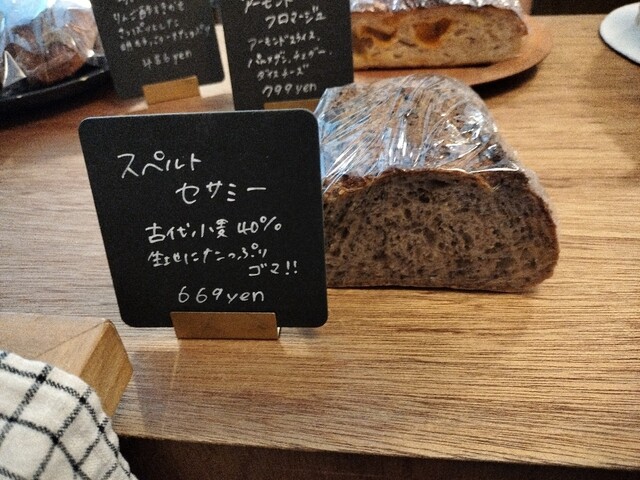 486yen
アーモンド
フロマージュ
アーモンドスライス、
パルメザン、チェダー、
ダイスチーズ
799yen
スペルト
セサミー
古代小麦40%
生地にたっぷり
ゴマ!!
669yen